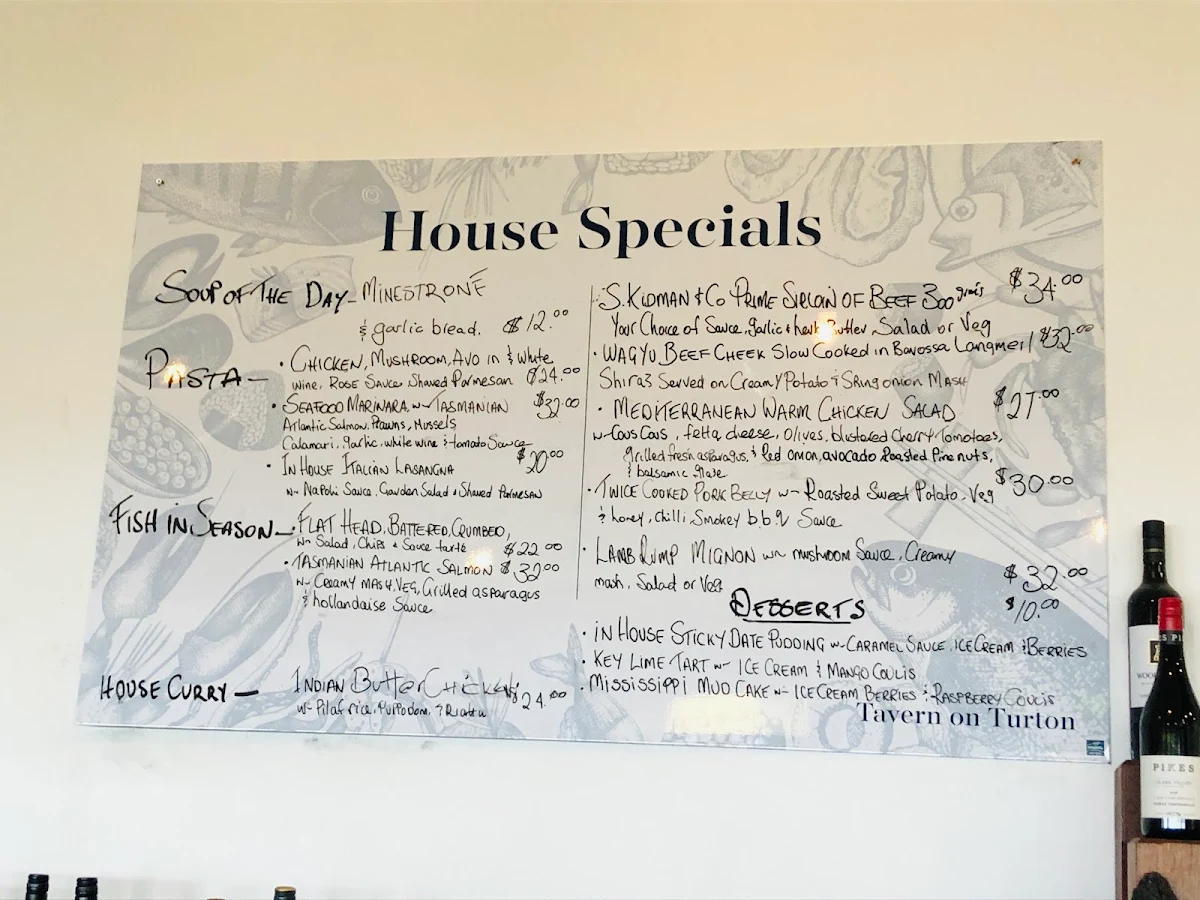 House Specials
SOUP OF THE DAY - MINESTRONE
& garlic bread. $12.00
PASTA -
• CHICKEN, MUSHROOM, AVO in & white
wine, ROSE SAUCE Shaved Parmesan $24.00
• SEAFOOD MARINARA, w~ TASMANIAN $32.00
Atlantic Salmon, Prawns, Mussels
Calamari, garlic, white wine & tomato Sauce
• IN HOUSE ITALIAN LASANGNA $20.00
w~ Napoli Sauce, Garden Salad & Shaved Parmesan
FISH IN SEASON -
• FLAT HEAD, BATTERED, CRUMBED,
w~ Salad, Chips & Sauce tarté $22.00
• TASMANIAN ATLANTIC SALMON $32.00
w~ Creamy MASH, VEG, Grilled asparagus
& hollandaise Sauce
HOUSE CURRY - INDIAN Butter CHICKEN $24.00
w~ Pilaf rice, Puppodom, & Riatta
• S. KIDMAN & Co PRIME SIRLOIN OF BEEF 300 grms $34.00
Your Choice of Sauce, garlic & herb Butter, Salad or Veg
• WAGYU BEEF CHEEK Slow Cooked in Barossa Langmeil $32.00
Shiraz Served on Creamy Potato & Spring onion MASH
• MEDITERRANEAN WARM CHICKEN SALAD $27.00
w~ Cous Cous, fetta cheese, Olives, blistered Cherry Tomatoes,
grilled fresh asparagus, & Red onion, avocado Roasted Pine nuts,
& balsamic glaze
• TWICE COOKED PORK BELLY w~ Roasted Sweet Potato, Veg $30.00
& honey, chilli, Smokey b.b.q Sauce
• LAMB RUMP MIGNON w~ mushroom Sauce, Creamy
mash, Salad or Veg $32.00
DESSERTS $10.00
• IN HOUSE STICKY DATE PUDDING w~ CARAMEL SAUCE, ICE CREAM & BERRIES
• KEY LIME TART w~ ICE CREAM & MANGO COULIS
• MISSISSIPPI MUD CAKE w~ ICE CREAM BERRIES & RASPBERRY COULIS
Tavern on Turton
PIKES